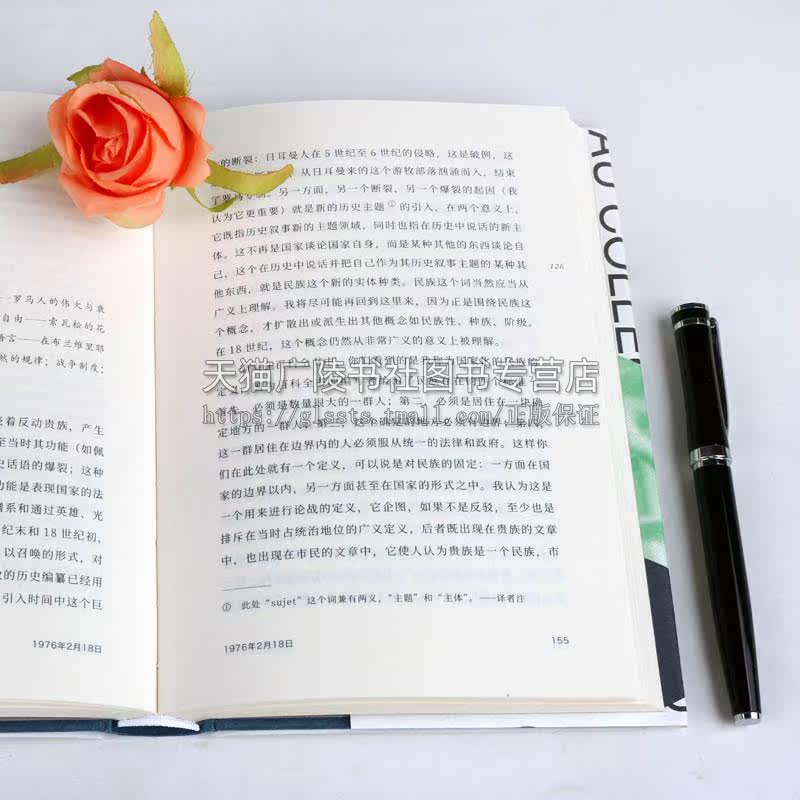 ——罗马人的伟大与衰
自由——索瓦松的花
语言——在布兰维里耶
然的规律；战争制度；
着反动贵族，产生
至当时其功能（如佩
史话语的爆裂；这种
功能是表现国家的法
谱系和通过英雄、光
纪末和 18 世纪初，
以召唤的形式，对
的历史编纂已经用
引入时间中这个巨
1976年2月18日
的断裂；日耳曼人在 5 世纪至 6 世纪的侵略，这是破例，这
从日耳曼来的这个游牧部落汹涌而入，结束
了罗马专制。另一方面，另一个断裂，另一个爆裂的起因（我
认为它更重要）就是新的历史主题①的引入，在两个意义上，
它既指历史叙事新的主题领域，同时也指在历史中说话的新主
体。这不再是国家谈论国家自身，而是某种其他的东西谈论自
己，这个在历史中说话并把自己作为其历史叙事主题的某种其
他东西，就是民族这个新的实体种类。民族这个词当然应当从
广义上理解。我将尽可能再回到这里来，因为正是围绕民族这
个概念，才扩散出或派生出其他概念如民族性、种族、阶级。
在 18 世纪，这个概念仍然从非常广义的意义上被理解。
天猫广陵书社图书专营店
首先，必须是数量很大的一群人；第二，必须是居住在一块确
https://glssts.tmall.com/正版保证
这一群居住在边界内的人必须服从统一的法律和政府。这样你
们在此处就有一个定义，可以说是对民族的固定：一方面在国
家的边界以内，另一方面甚至在国家的形式之中。我认为这是
一个用来进行论战的定义，它企图，如果不是反驳，至少也是
排斥在当时占统治地位的广义定义，后者既出现在贵族的文章
中，也出现在市民的文章中，它使人认为贵族是一个民族，市
① 此处“sujet”这个词兼有两义，“主题”和“主体”。——译者注
1976年2月18日
155
126
AU COLLE